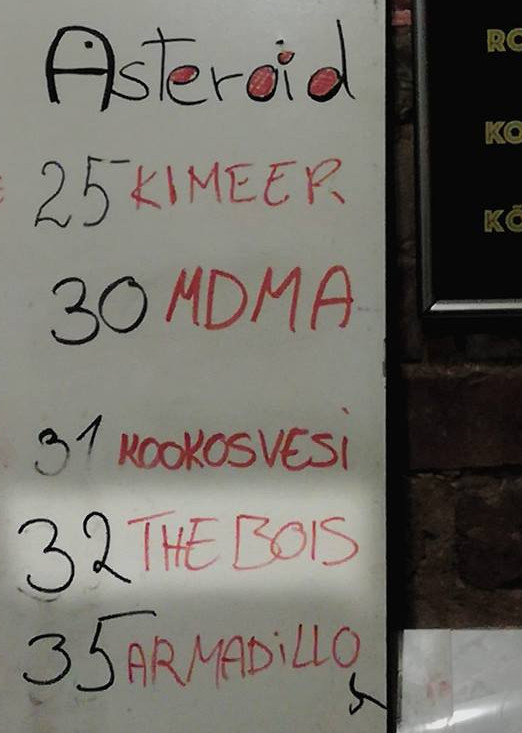 Asteroid
25 KIMEER
30 MDMA
31 KOOKOSVESI
32 THE BOIS
35 ARMADiLLO
RO
KO
KÕ